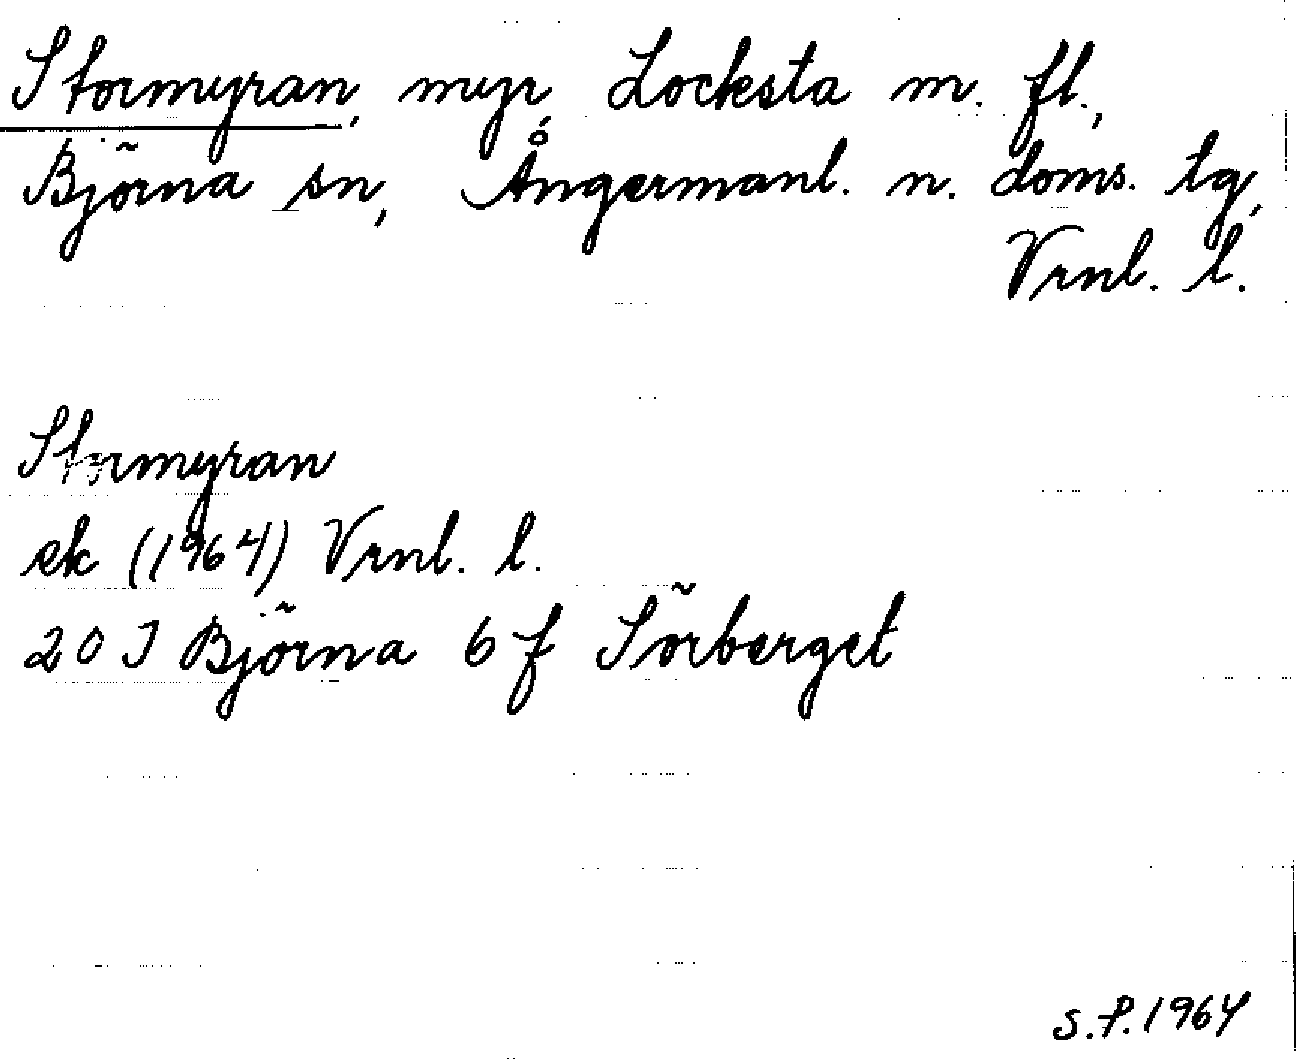 Stormyran, myr, Locksta m. fl.,
Björna sn, Ångermanl. n. doms. lg,
Vrnl. l.
Stormyran
ek (1964) Vrnl. l.
20 J Björna 6 f Sörberget
S.P. 1964